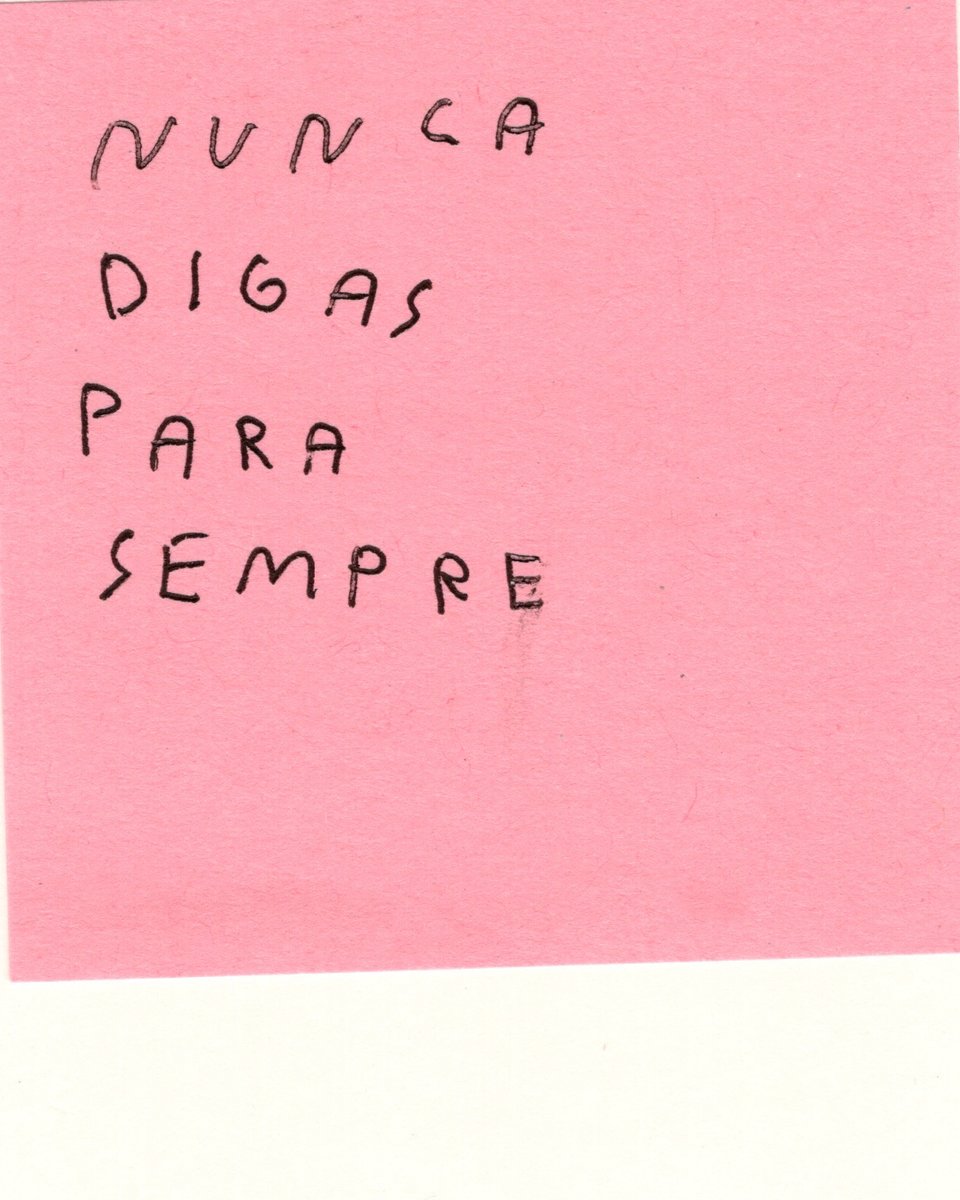 NUNCA
DIGAS
PARA
SEMPRE